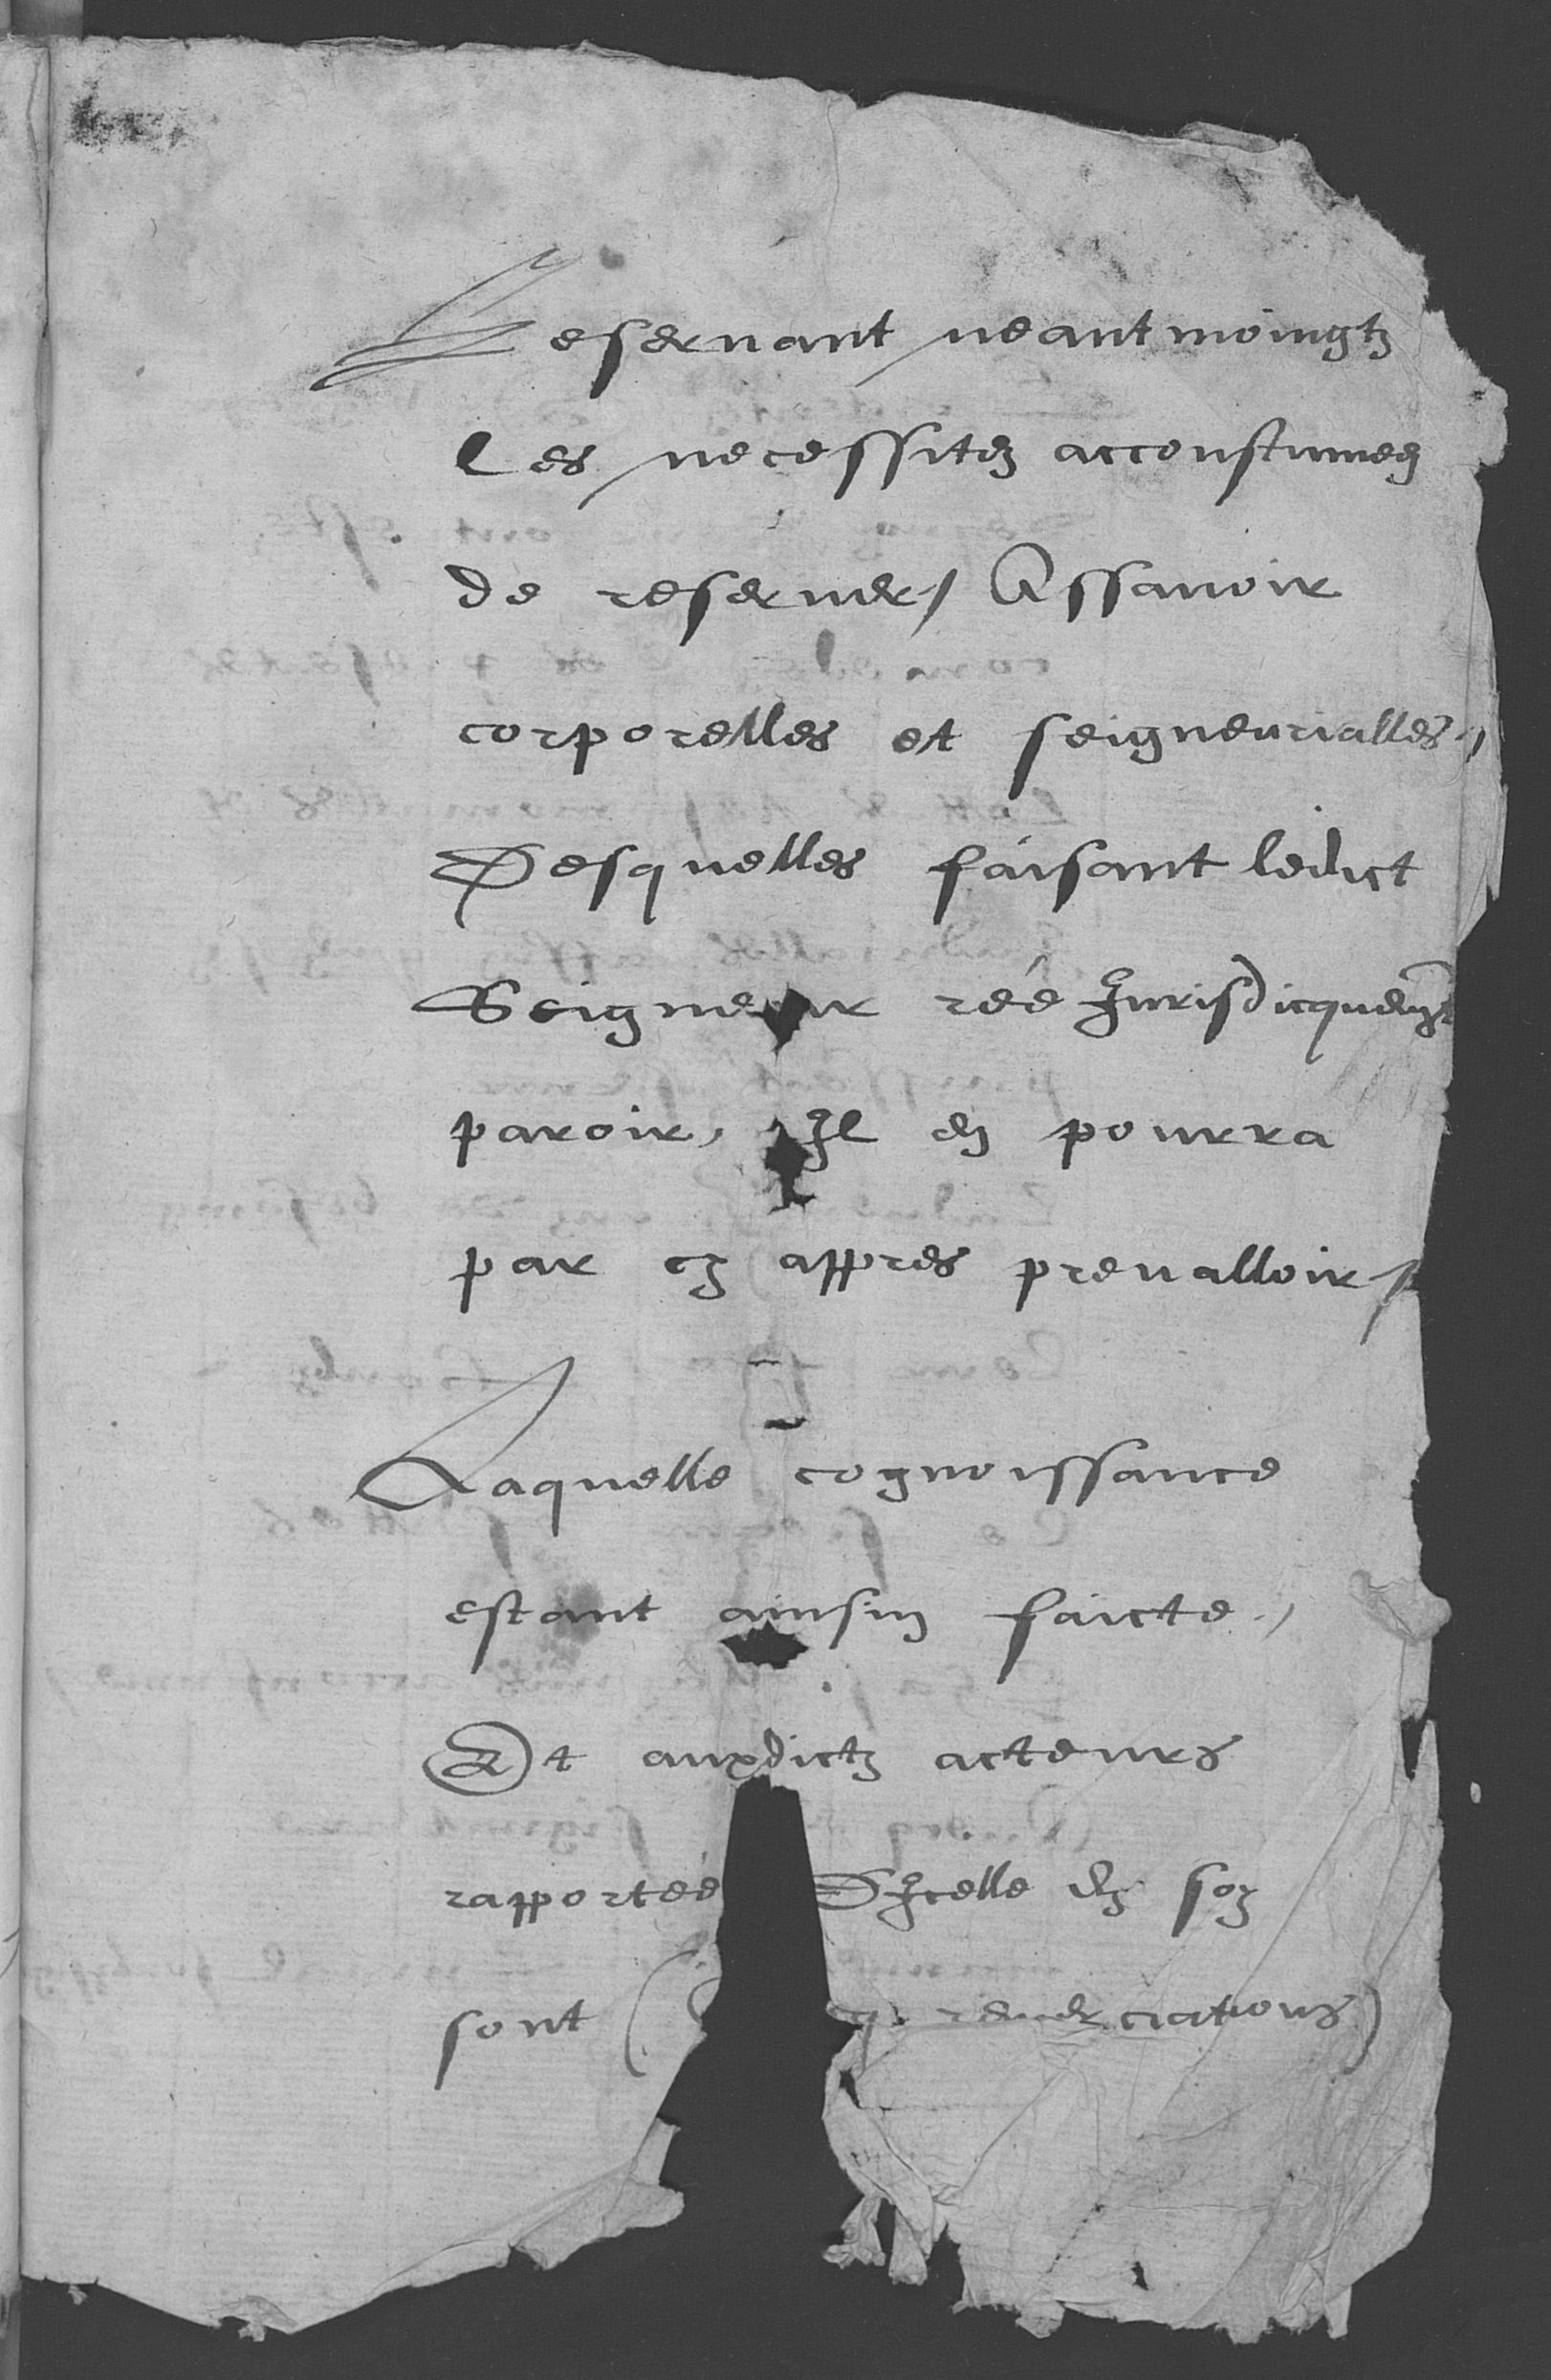 Reservant neantmoingtz
les necessitez accoustumeez
de reserver / Assavoir
corporelles et seigneurialles /
Desquelles faisant ledict
Seigneur reé Jurisdicquemẽt
paroir, Il en pourra
par cy appres prevalloir /
Laquelle cognoissance
estant ainsin faicte /
Et auxdictz acteurs
rapporteé DIcelle en soy
sont ( remerciations )